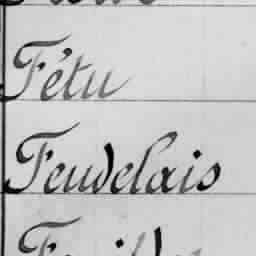 Fétu
Feudelais